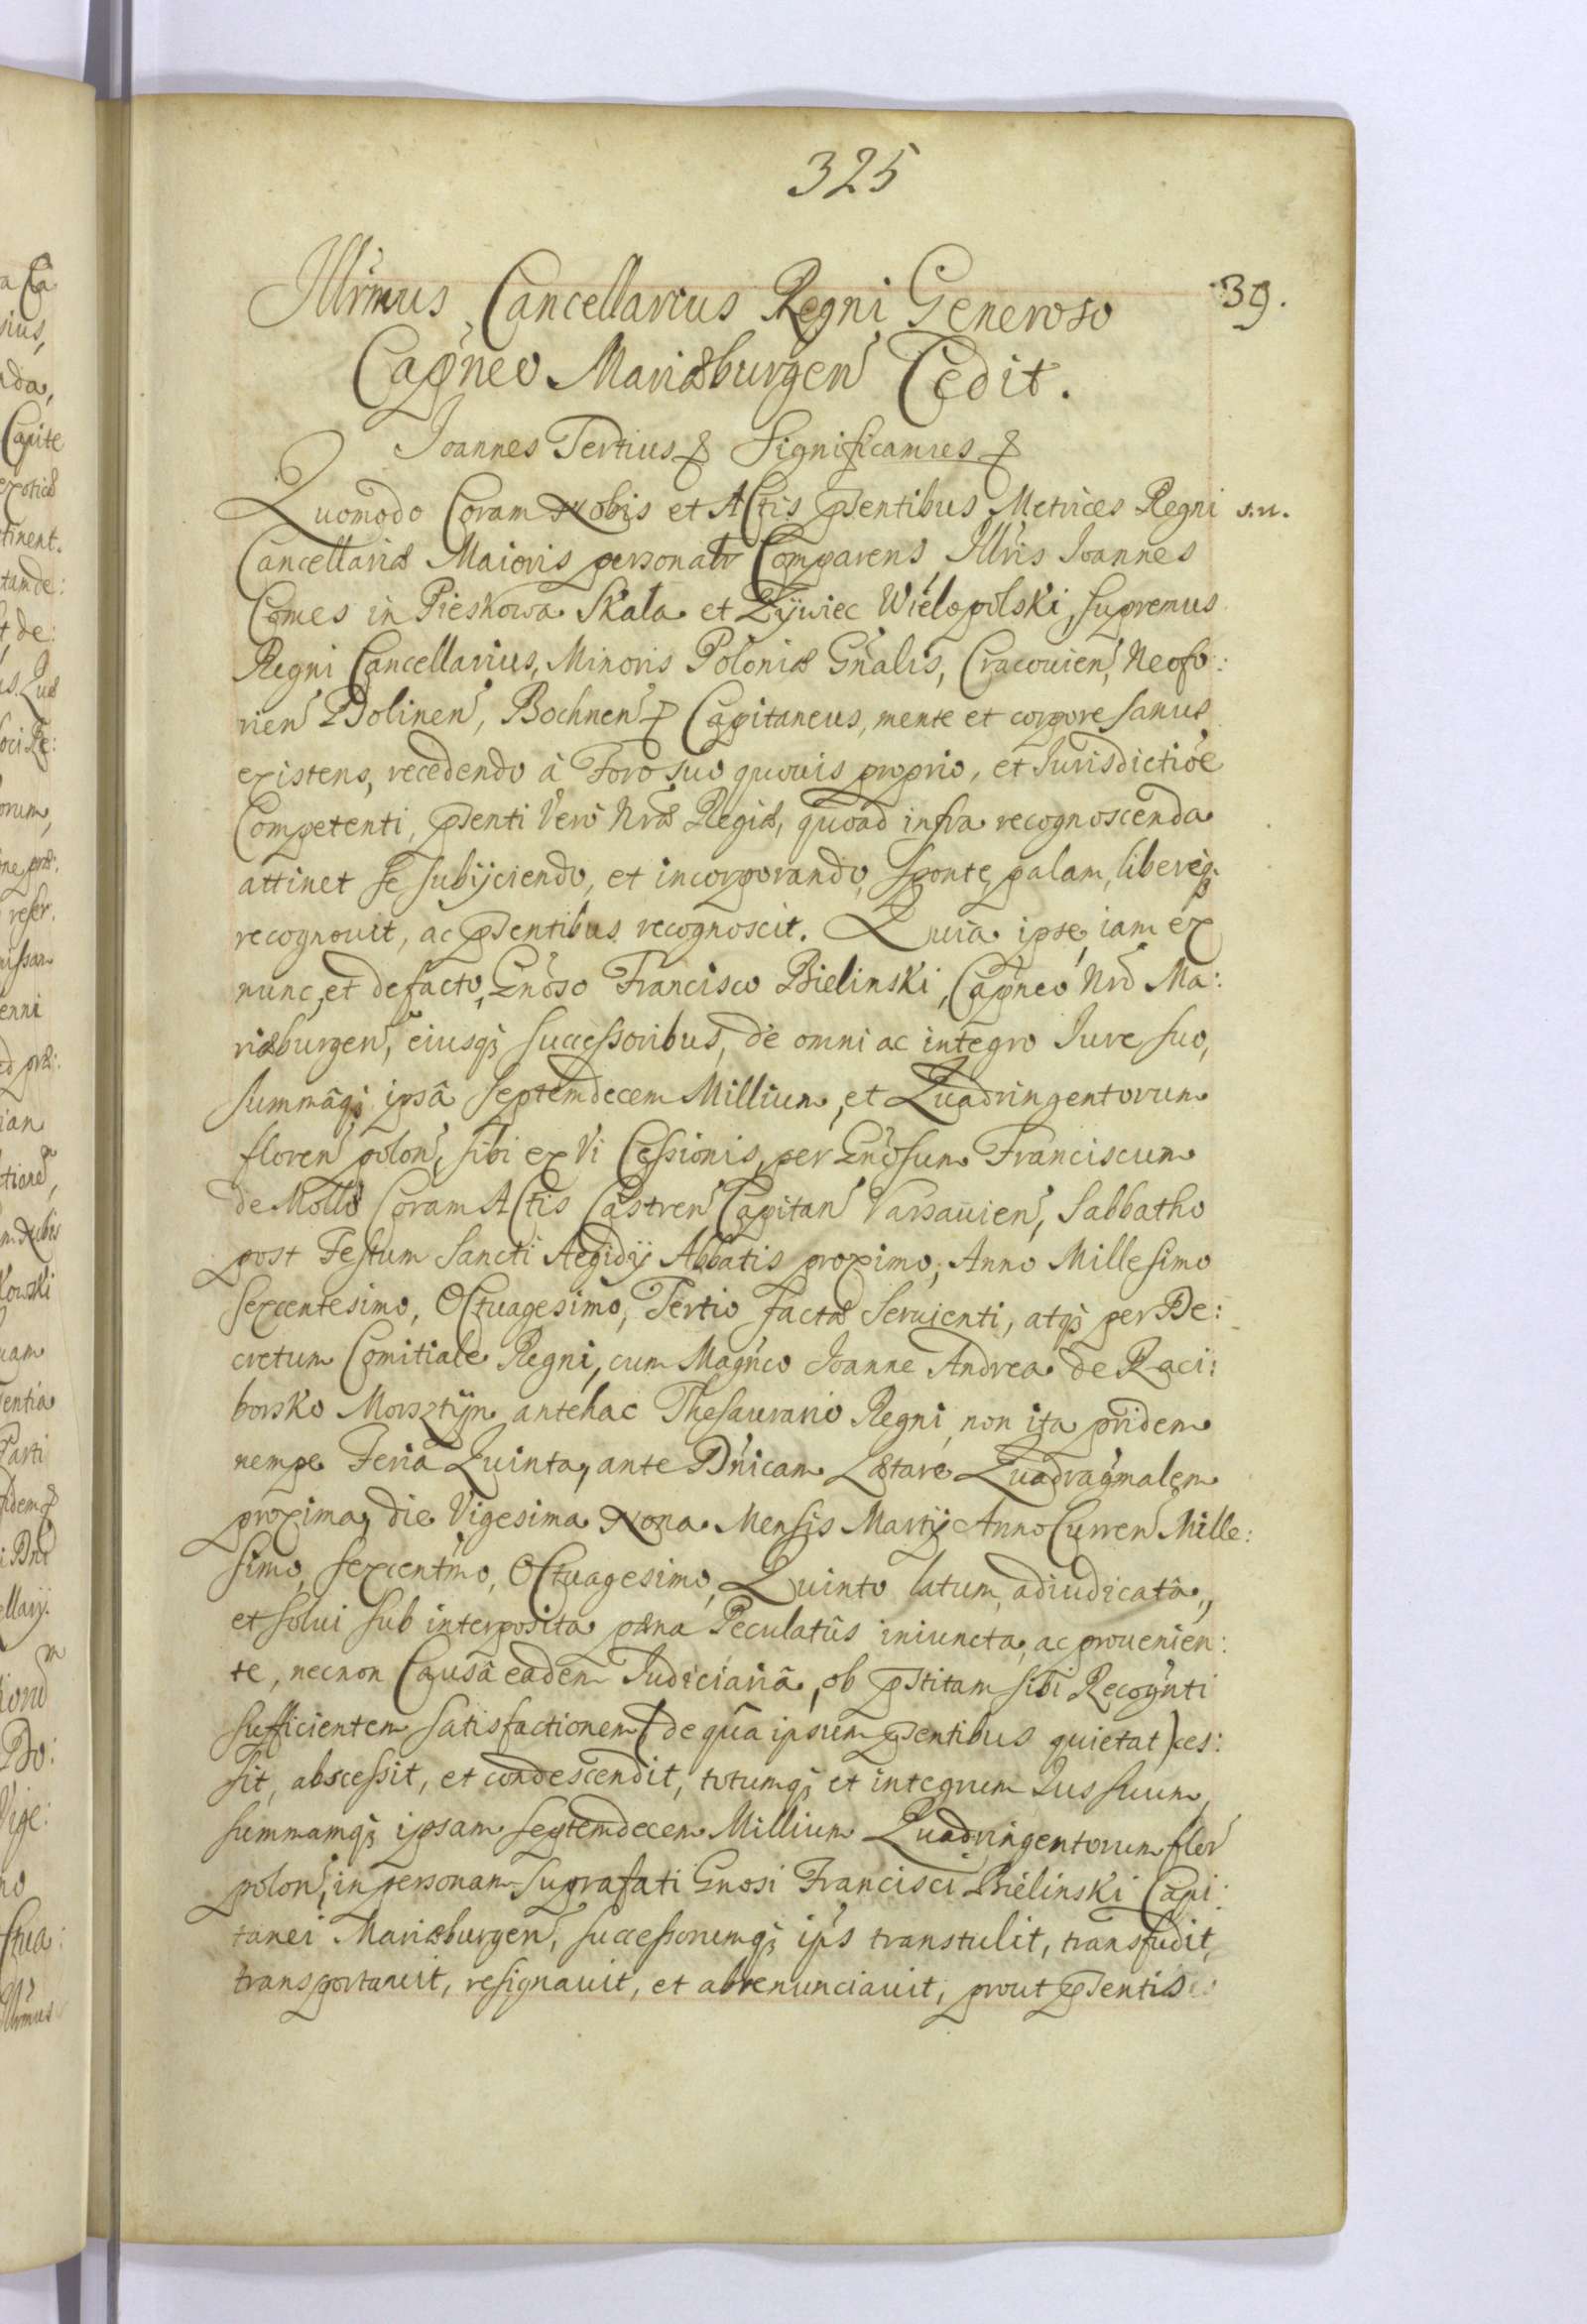 325
Illrmus Cancellarius Regni Generoso
39.
Capneo Mariæburgen Cedit.
Joannes Tertius & Significamus &
Quomodo Coram Nobis et Actis pntibus Metrices Regni
s.n.
Cancellariæ Maioris personalr Comparens Illris Joannes
Comes in Pieskowa Skala et Zÿwiec Wielopolski, Supremus
Regni Cancellarius, Minoris Poloniæ Gnalis, Cracouien, Neofo:
rien Dolinen, Bochnen & Capitaneus, mente et corpore sanus
existens, recedendo à Foro suo quouis proprio, et Jurisdictioe
Competenti, psenti Vero Nræ Regiæ, quoad infra recognoscenda
attinet se subijciendo, et incorporando, sponte, palam, libereq;
recognouit, ac psentibus recognoscit. Quia ipse iam ex
nunc, et defacto, Gnoso Francisco Bielinski, Capneo Nro Ma:
riæburgen, eiusq; successoribus, de omni ac integro Jure suo,
summâq; ipsâ Septemdecem Millium, et Quadringentorum
floren polon, sibi ex Vi Cessionis, per Gnosum Franciscum
de Mollo Coram Actis Castren Capitan Varsauien, Sabbatho
post Festum Sancti Aegidij Abbatis proximo, Anno Millesimo
Sexcentesimo, Octuagesimo, Tertio factæ Seruienti, atq; per De:
cretum Comitiale Regni, cum Magnco Joanne Andrea de Raci:
borsko Morsztÿn antehac Thesaurario Regni, non ita pridem
nempe Feria Quinta, ante Dnicam Lætare Quadragmalem
proxima, die Vigesima Nona Mensis Martij Anno Curren Mille:
simo, Sexcentmo, Octuagesimo, Quinto latum, adiudicatâ,
et solui sub interposita pæna Peculatûs iniuncta, ac prouenien:
te, necnon Causâ eadem Judiciariâ, ob pstitam sibi Recognti
sufficientem satisfactionem (de qua ipsum psentibus quietat) ces:
sit, abscessit, et condescendit, totumq; et integrum Jus suum,
summamq; ipsam Septemdecem Millium Quadringentorum flor
polon, in personam suprafati Gnosi Francisci Bielinski Capi:
tanei Mariæburgen, successorumq; ips transtulit, transfudit,
transportauit, resignauit, et abrenunciauit, prout psentis